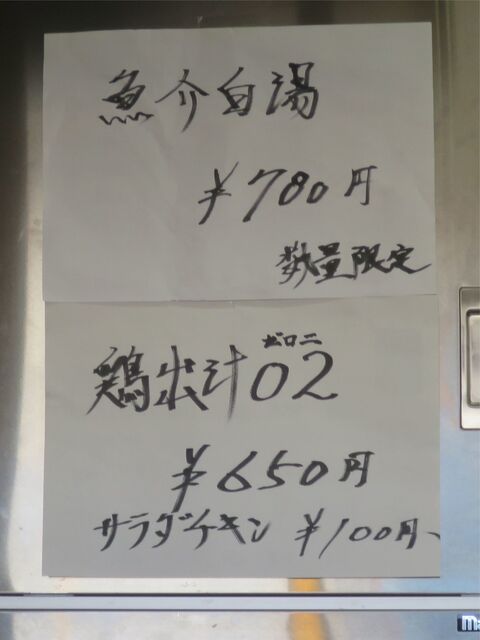 魚介白湯
¥780円
数量限定
ゼロニ
鶏出汁02
¥650円
サラダチキン ¥100円、